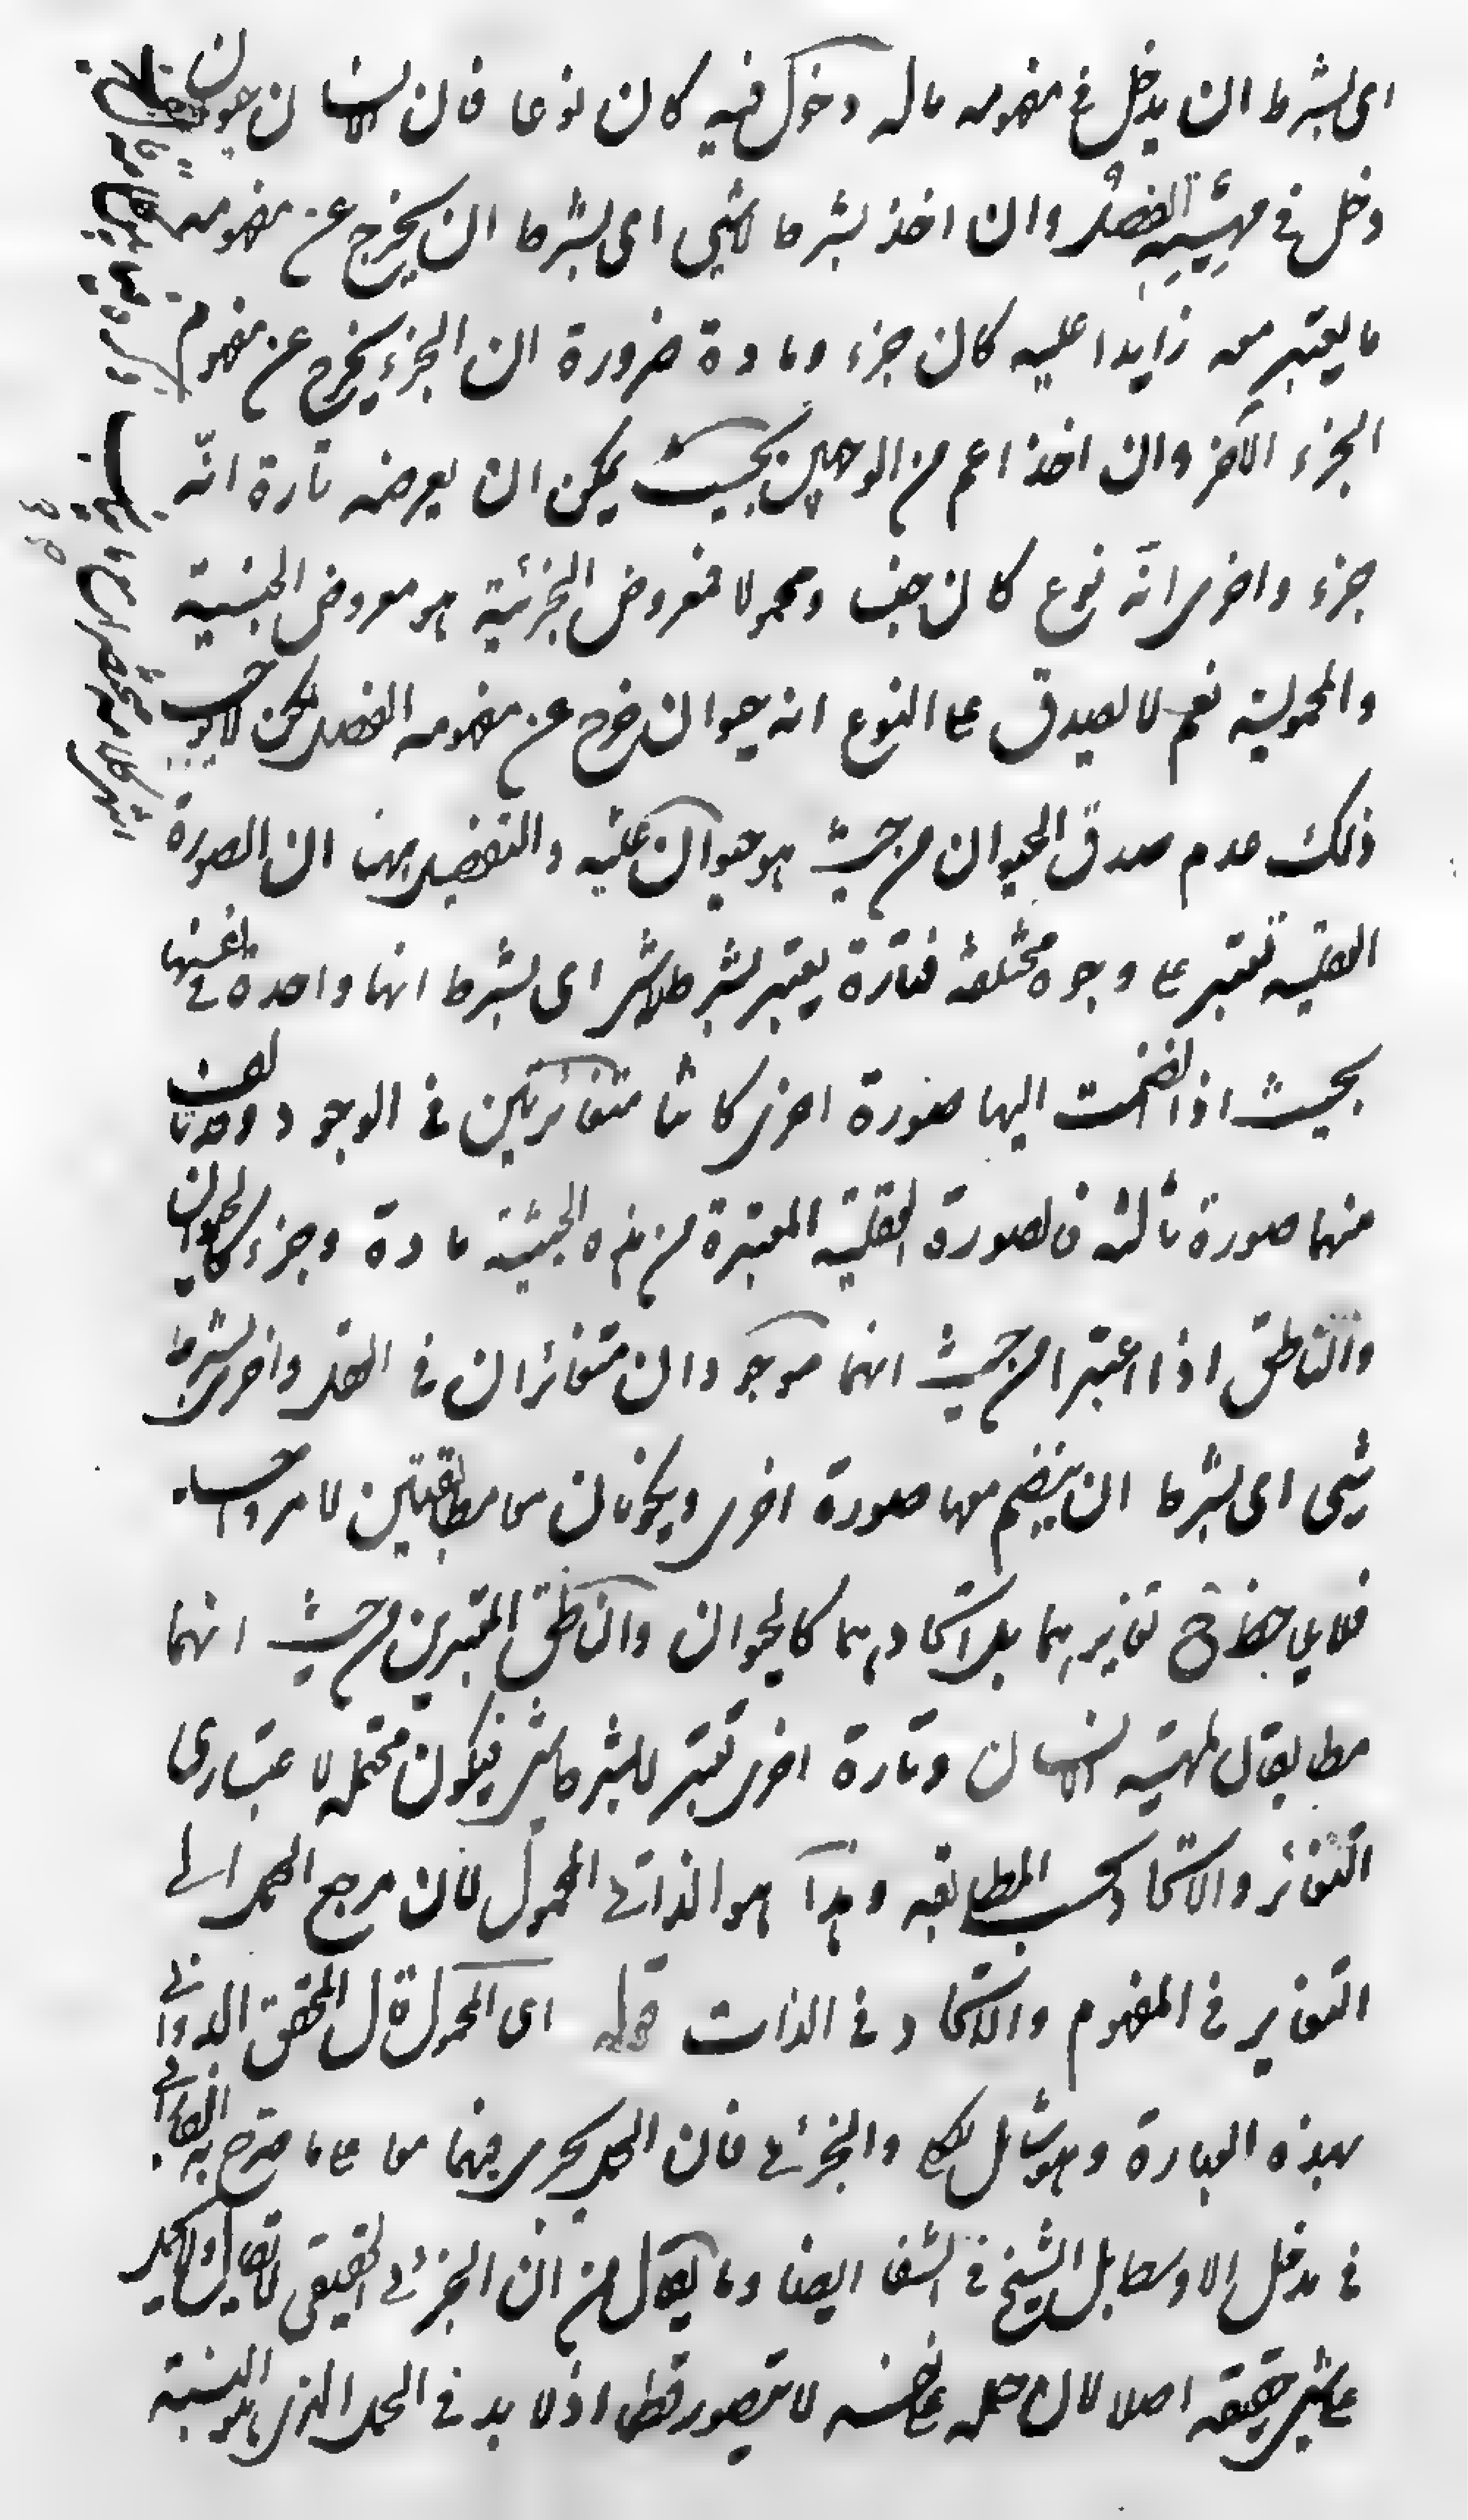 اى بشرط ان يدخل فى مفهومه ماله دخول فيه كان نوعا فان الانسان حيوان
دخل فى مهيته الفصل وان اخذ بشرط لاشئ اى بشرط ان يخرج عن مفهومه
ما يعتبر معه زايدا عليه كان جزء ومادة ضرورة ان الجزء يخرج عن مفهوم
الجزء الآخر وان اخذ اعم من الوجهين بحيث يمكن ان يعرضه تارة انّه
جزء واخرى انّه نوع كان جنسا ومحمولا فمعروض الجزئية هو معروض الجنسية
والمحمولية نعم لا يصدق على النوع انه حيوان خرج عن مفهومه الفصل لكن لا يوجب
ذلك عدم صدق الحيوان من حيث هو حيوان عليه والتفصيل ههنا ان الصورة
العقلية تعتبر على وجوه مختلفة فتارة يعتبر بشرط لاشئ اى بشرط انها واحدة فى نفسها
بحيث اذا انضمت اليها صورة اخرى كانتا متغائرتين فى الوجود وحصلت
منهما صورة ثالثة فالصورة العقلية المعتبرة من هذه الحيثية مادة وجزء كالحيوان
والناطق اذا اعتبرا من حيث انهما موجودان متغائران فى العقل واخرى بشرط
شئ اى بشرط ان ينضم معها صورة اخرى ويكونان معا مطابقتين لامر واحد
فلا يلاحظ ح تغايرهما بل اتحادهما كالحيوان والناطق المعتبرين من حيث انهما
مطابقان لمهية الانسان وتارة اخرى تعتبر لابشرط شئ فيكون محتملة لاعتبارى
التغائر والاتحاد بحسب المطابقة وهذا هو الذاتى المحمول لان مرجع الحمل الى
التغاير فى المفهوم والاتحاد فى الذات قوله اى المحمول قال المحقق الدوانى
بهذه العبارة وهو يشمل الكلى والجزئى فان الحمل يجرى فيهما معا على ما صرح به الفارابى
فى مدخل الاوسط بل الشيخ فى الشفا ايضا وما يقال من ان الجزئى الحقيقى لا يقال ولا يحمل
على شئ حقيقة اصلا لان حمله على نفسه لا يتصور قطعا اذ لا بد فى الحمل الذى هو النسبة